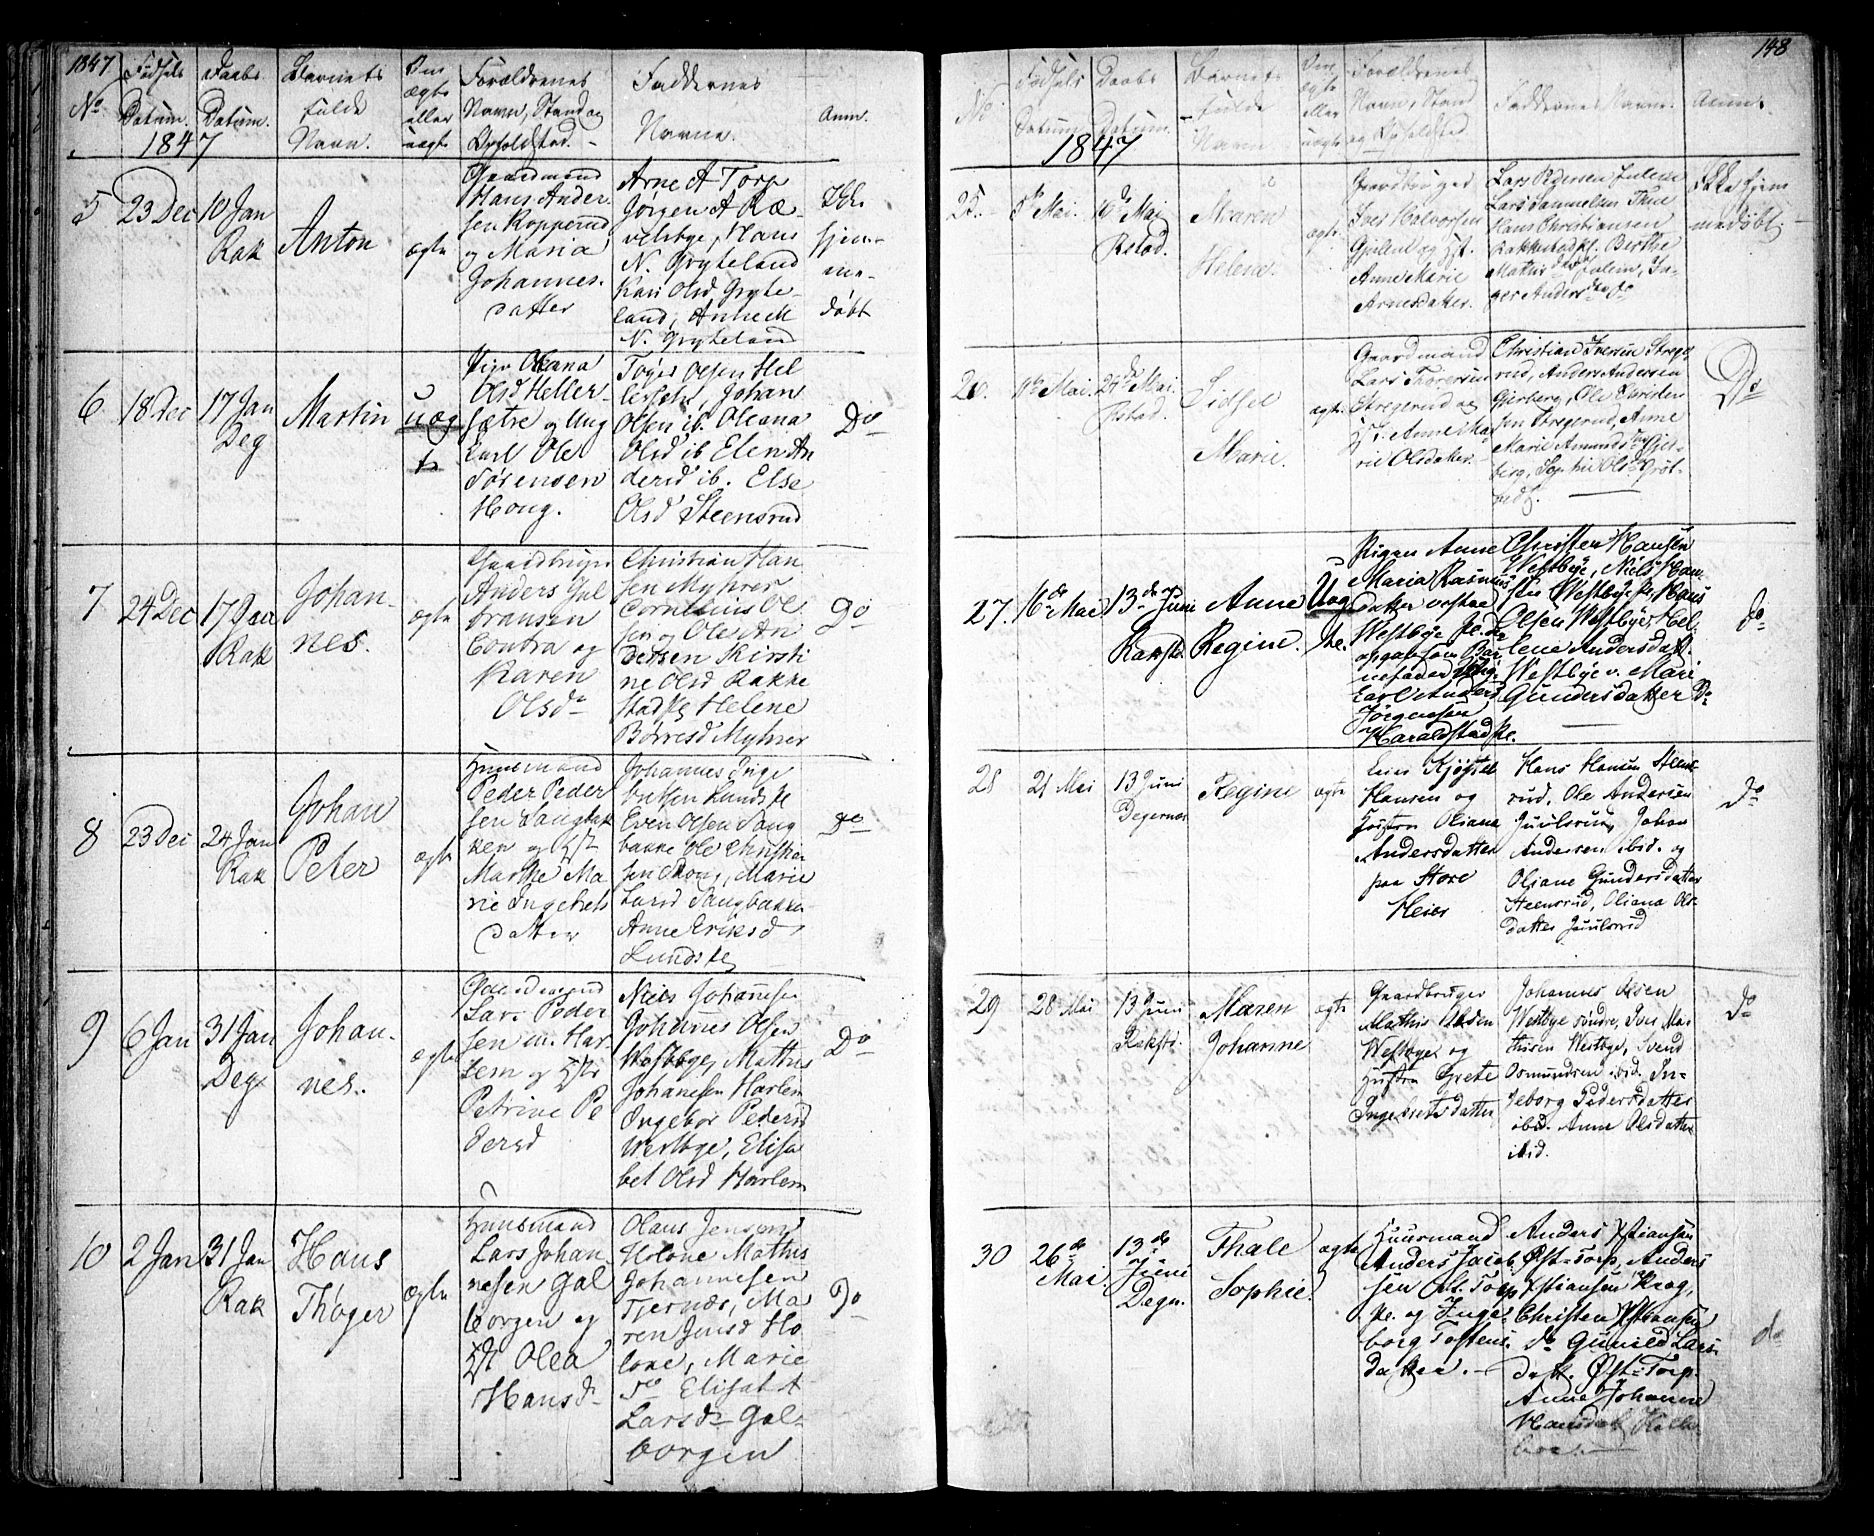 1847
No
Fødsels
Datum.
Daabs
Datum.
1847
Barnets
fulde
Navn.
Om
ægte
eller
uægte
Forældrenes
Navn, Stand og
Opholdsted.
Faddernes
Navne.
Anm.
5
23 Dec
10 Jan
Rak
Anton
ægte
Gaardmand
Hans Ander-
sen Kopperud
og Maria
Johannes-
datter
Arne A Torp
Jørgen A Ræ-
velsbye, Hans
N. Gryteland
Kari Olsd Gryte-
land, Anne M
N. Gryteland
Ikke
hjem-
me-
døbt
6
18 Dec
17 Jan
Deg
Martin
uæg
te
Pige Oleana
Olsd Heller-
sætre og Ung
karl Ole
Sørensen
Houg.
Olsen Hel
Johan
Olsen ib. Oleana
Olsd ib Elen An
dersd ib. Else
Olsd Steensrud
Do
7
24 Dec
17 Jan
Rak
Johan-
nes.
ægte
Gaardbruger
Anders Gul
bransen
og
Karen
Olsdr
Christian Han
sen Myhrer
Cornelius Ol
sen og Ole An
dersen Kirsti
ne Olsd Rakke
stad Helene
Børresd Myhrer
Do
8
23 Dec
24 Jan
Rak
Johan
Peter
ægte
Huusmand
Peder Peder
sen Langbak
ken og Hst
Marthe Ma
rie Ingebrets
datter
Johannes Inge
bretsen Lunds
Even Olsen Lang
bakke Ole Christian
sen, Marie
Larsd Langbakke
Anne Eriksd
Lunds
Do
9
6 Jan
31 Jan
Deg
Johan-
nes.
ægte
Gaardmand
Lars Peder
sen m. Har
lem og Hstr
Petrine Pe
dersd
Niels Johannesen
Johannes Olsen
Westbye, Mathis
Johannesen Harlem
Ingebor Pedersd
Westbye, Elisa
bet Olsd Harlem
Do
10
2 Jan
31 Jan
Rak
Hans
Thøger
ægte
Huusmand
Lars Johan
nesen Gal
borgen og
Hst Olea
Hansdr
Olaus Jensen
Holone Mathis
Johannesen
Tjernæs, Ma
ren Jensd Ho
lone, Marie
Do Elisabt
Larsdr Gal-
borgen
Do
148
No.
Fødsels
Datum
Daabs
Datum.
1847
Barnets
fulde
Navn
Om
ægte
eller
uægte
Forældrenes
Navn, Stand
og Opholdsted.
Faddernes Navne.
Anm.
25.
8de Mai.
16de Mai
Rstad.
Maren
Helene.
ægte
Gaardbruger
Iver Halvorsen
Gjulem og Hst.
Anne Marie
Arnesdatter.
Lars Pedersen Julem
Lars Samuelsen Thue
Hans Christiansen
Birthe
Mathisdatter Julem, In-
ger Andersdatter do
Ikke hjem
medøbt
26.
11te Mai.
24de Mai.
Rstad.
Sidsel
Marie.
ægte.
Gaardmand
Lars Thoresen
Stregerud og
Hst. Anne Ma
rie Olsdatter.
Christian Iversen Strege
rud, Anders Andersen
Gjerberg, Ole Christen
sen Stregerud, Anne
Marie Amunds
berg, Sophie Olsdr
Do
27.
16de Mai
13de Juni
Rakstd.
Anne
Regine.
Uæg
te.
Pigen Anne
Maria Rasmus
datter østre
Westbye
opgav som Bar
nefader Ung
karl Anders
Jørgensen
Haraldstad
Christen Hansen
Westbye, Niels Han-
sen Westbye Hans
Olsen Westbye Hel-
lene Andersdatt.
Westbye v. Mari
Gundersdatter Do
do
28
21 Mai
13 Juni
Degernæs
Regine
ægte
Hansen og
Hustru Oliana
Andersdatter
paa Store
Heier
Hans Hansen Steens
rud, Ole Andersen
Juulsrud, Johan
Andersen ibid. og
Oliane Gundersdatter
Steensrud, Oliana Ols
datter Juulsrud
do
29
28 Mai
13 Juni
Rakst.
Maren
Johanne
ægte
Gaardbruger
Mathis Olsen
Westbye og
Hustru Grete
Ingebretsdatter
Johannes Olsen
Westbye søndre, Iver Ma-
thisen Westbye, Svend
Osmundsen ibid. In-
geborg Pedersdatter
ibid. Anne Olsdatter
ibid.
do
30
26de
Mai
13de
Juni
Degn.
Thale
Sophie.
ægte
Huusmand
Anders Jacob
sen Øst. Torp
og Inge-
borg Tostens
datter.
Anders Xstiansen
Øst-Torp, Anders
Xstiansen Krog,
Christen Xstiansen
do Gunild Lars-
datt. Øst-Torp.
Anne Johanne
Hansdatt
do